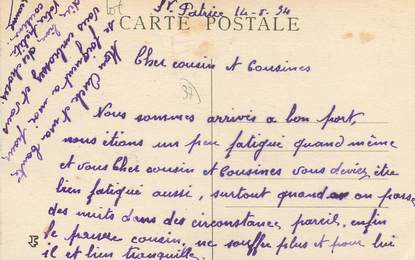 St. Patrice 14-5-24
CARTE POSTALE
37
Cher cousin et Cousines
Nous sommes arrivés a bon port,
nous étions un peu fatigué quand même
et vous Cher cousin et Cousines vous deviez être
bien fatigué aussi, surtout quand on passe
des nuits dans des circonstance pareil, enfin
le pauvre cousin, ne souffre plus et pour lui
il et bien tranquille.
Mon Oncle et ma tante
se joignent a moi pour
vous embrasser et vous